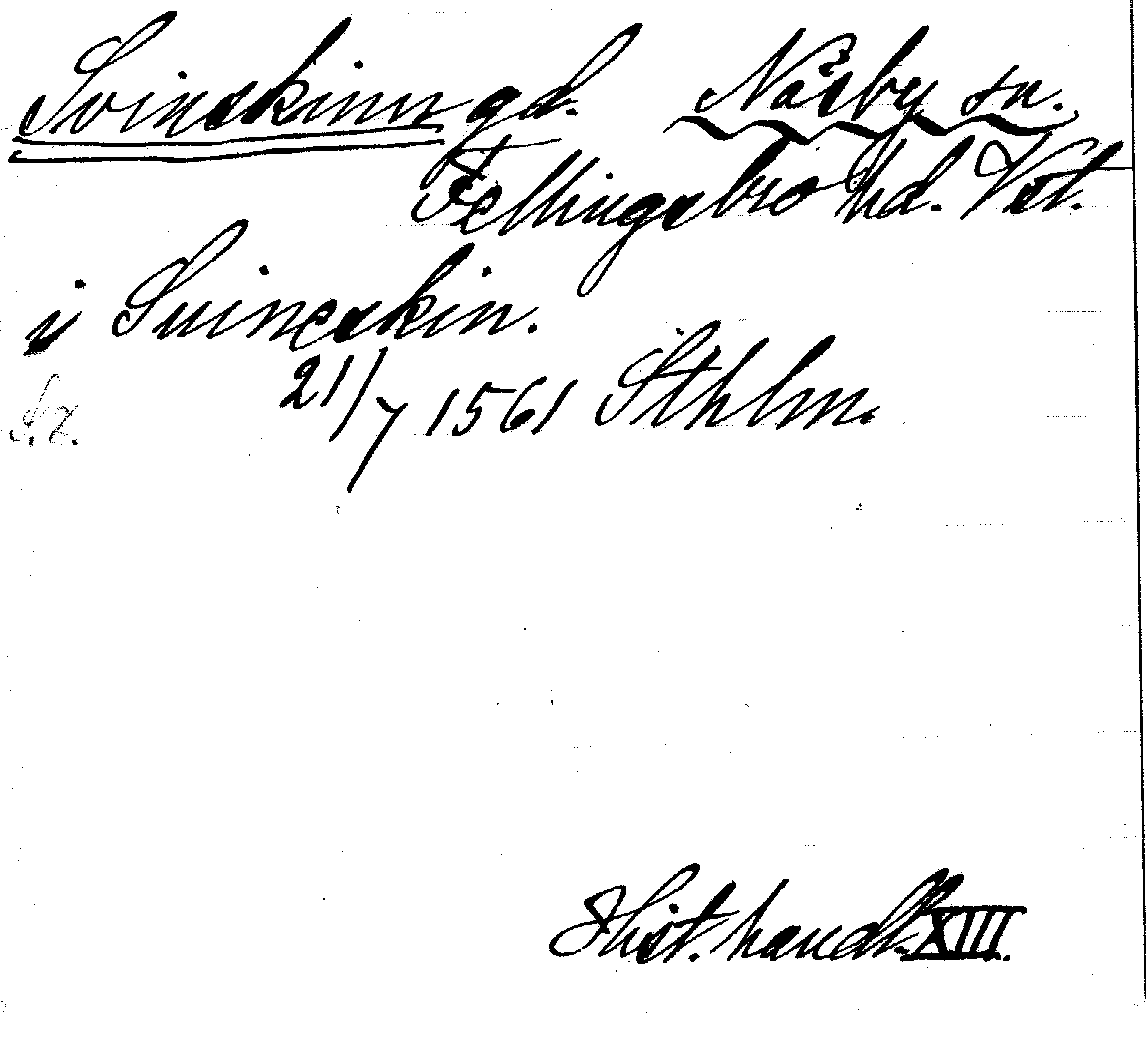 Svinskinn gd. Näsby sn.
Fellingsbro hd. Vstl.
i Suineskin.
21/7 1561 Sthlm.
Hist. handl. XIII.